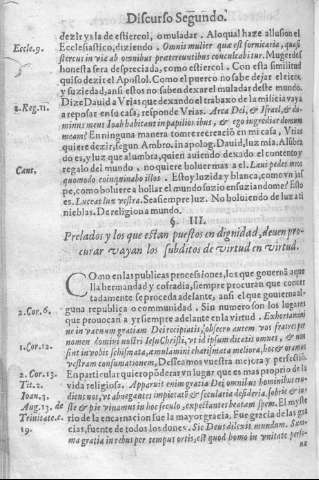 Discurso Segundo.
dezir ya sa de estiercol, o muladar. A lo qual haze alusion el
Eccle. 9. Ecclesiastico, diziendo. Omnis mulier quæ est fornicaria, quasi
stercus in via ab omnibus prætereuntibus conculcabitur. Muger des
honesta sera despreciada, como estiercol. Con esta similitud
quiso dezir el Apostol. Como el puerco no sabe dejar el cieno,
y suziedad, ansi estos no saben dexar el muladar deste mundo.
2. Reg. 11. Dize Dauid a Vrias que dexando el trabajo de la milicia vaya
a reposar en su casa, responde Vrias. Arca Dei, & Israel, & do-
minus meus Ioab habitant in papilionibus, & ego ingrediar domum
meam? En ninguna manera tome recreacion en mi casa, Vrias
quiere dezir, segun Ambro. in apolog. Dauid, luz mia. Al sier
do es, y luz que alumbra, quien auiendo dexado el contento y
Cant. regalo del mundo, no quiere boluerense a el. Laui pedes meos
quomodo coinquinabo illos. Estoy luzida y blanca, como vn jas
pe, como boluere a hollar el mundo suzio ensuziandome? Esto
es. Luceat lux vestra. Sea siempre luz. No boluiendo de luz a ti
nieblas. De religion a mundo.
§. III.
Prelados y los que estan puestos en dignidad, deuen pro-
curar vayan los subditos de virtud en virtud.
COmo en las publicas processiones, los que gouiernã aque
lla hermandad y cofradia, siempre procuran que concer
tadamente se proceda adelante, ansi el que gouierna al-
2. Cor. 6. guna republica o comunidad. Sin numero son los lugares
que prouocan a yr siempre adelante en la virtud. Exhortamur
ne in vacuum gratiam Dei recipiatis, obsecro autem vos fratres per
1. Cor. 12. nomen domini nostri Iesu Christi, vt id ipsum dicatis omnes, & non
sint in vobis schismata, æmulamini charismata meliora, hoc & oramus
vestram consummationem, Desseamos vuestra mejora y perfectiõ.
2. Cor. 13. En particular quiero põderar vn lugar que es mas proprio de la
Tit. 2. vida religiosa. Apparuit enim gratia Dei omnibus hominibus eru-
Ioan. 3. diens nos, vt abnegantes impietatē & secularia desideria, sobrie & ius
Aug. 13. de te & pie viuamus in hoc seculo, expectantes beatam spem. El myste
Trinitate. c. rio de la encarnacion fue la mayor gracia, Fue gracia de las gra
19. cias, fuente de todos los dones. Sic Deus dilexit mundum. Sum-
ma gratia in rebus per tempus ortis, est quod homo in vnitate perso-
næ